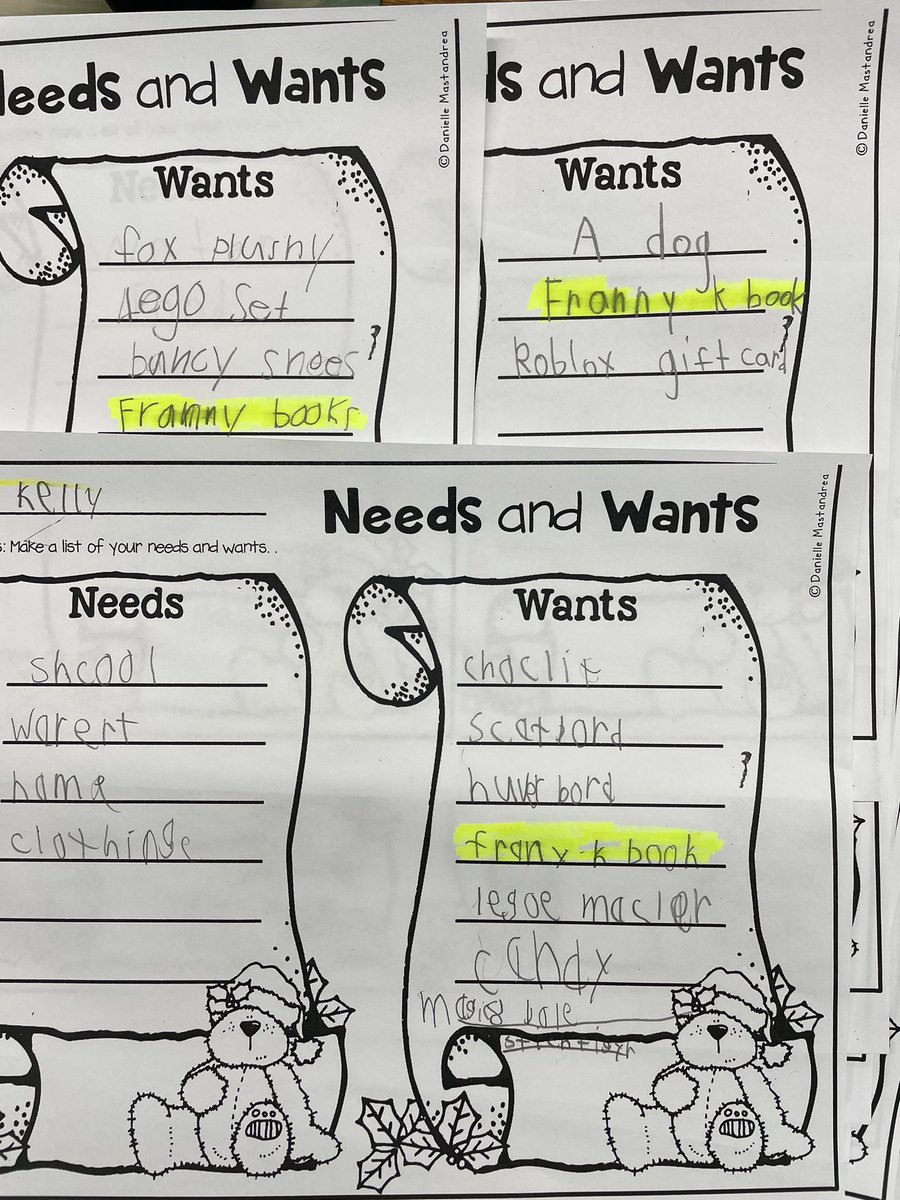 Needs and Wants
©Danielle Mastandrea
Wants
fox plushy
Lego Set
buncy shoes
Franny books
ds and Wants
©Danielle Mastandrea
Wants
A dog
Franny k book
Roblox gift card
kelly
Needs and Wants
©Danielle Mastandrea
s: Make a list of your needs and wants. .
Needs
shcool
warert
home
clothinge
Wants
choclit
huver bord
frany k book
legoe master
candy